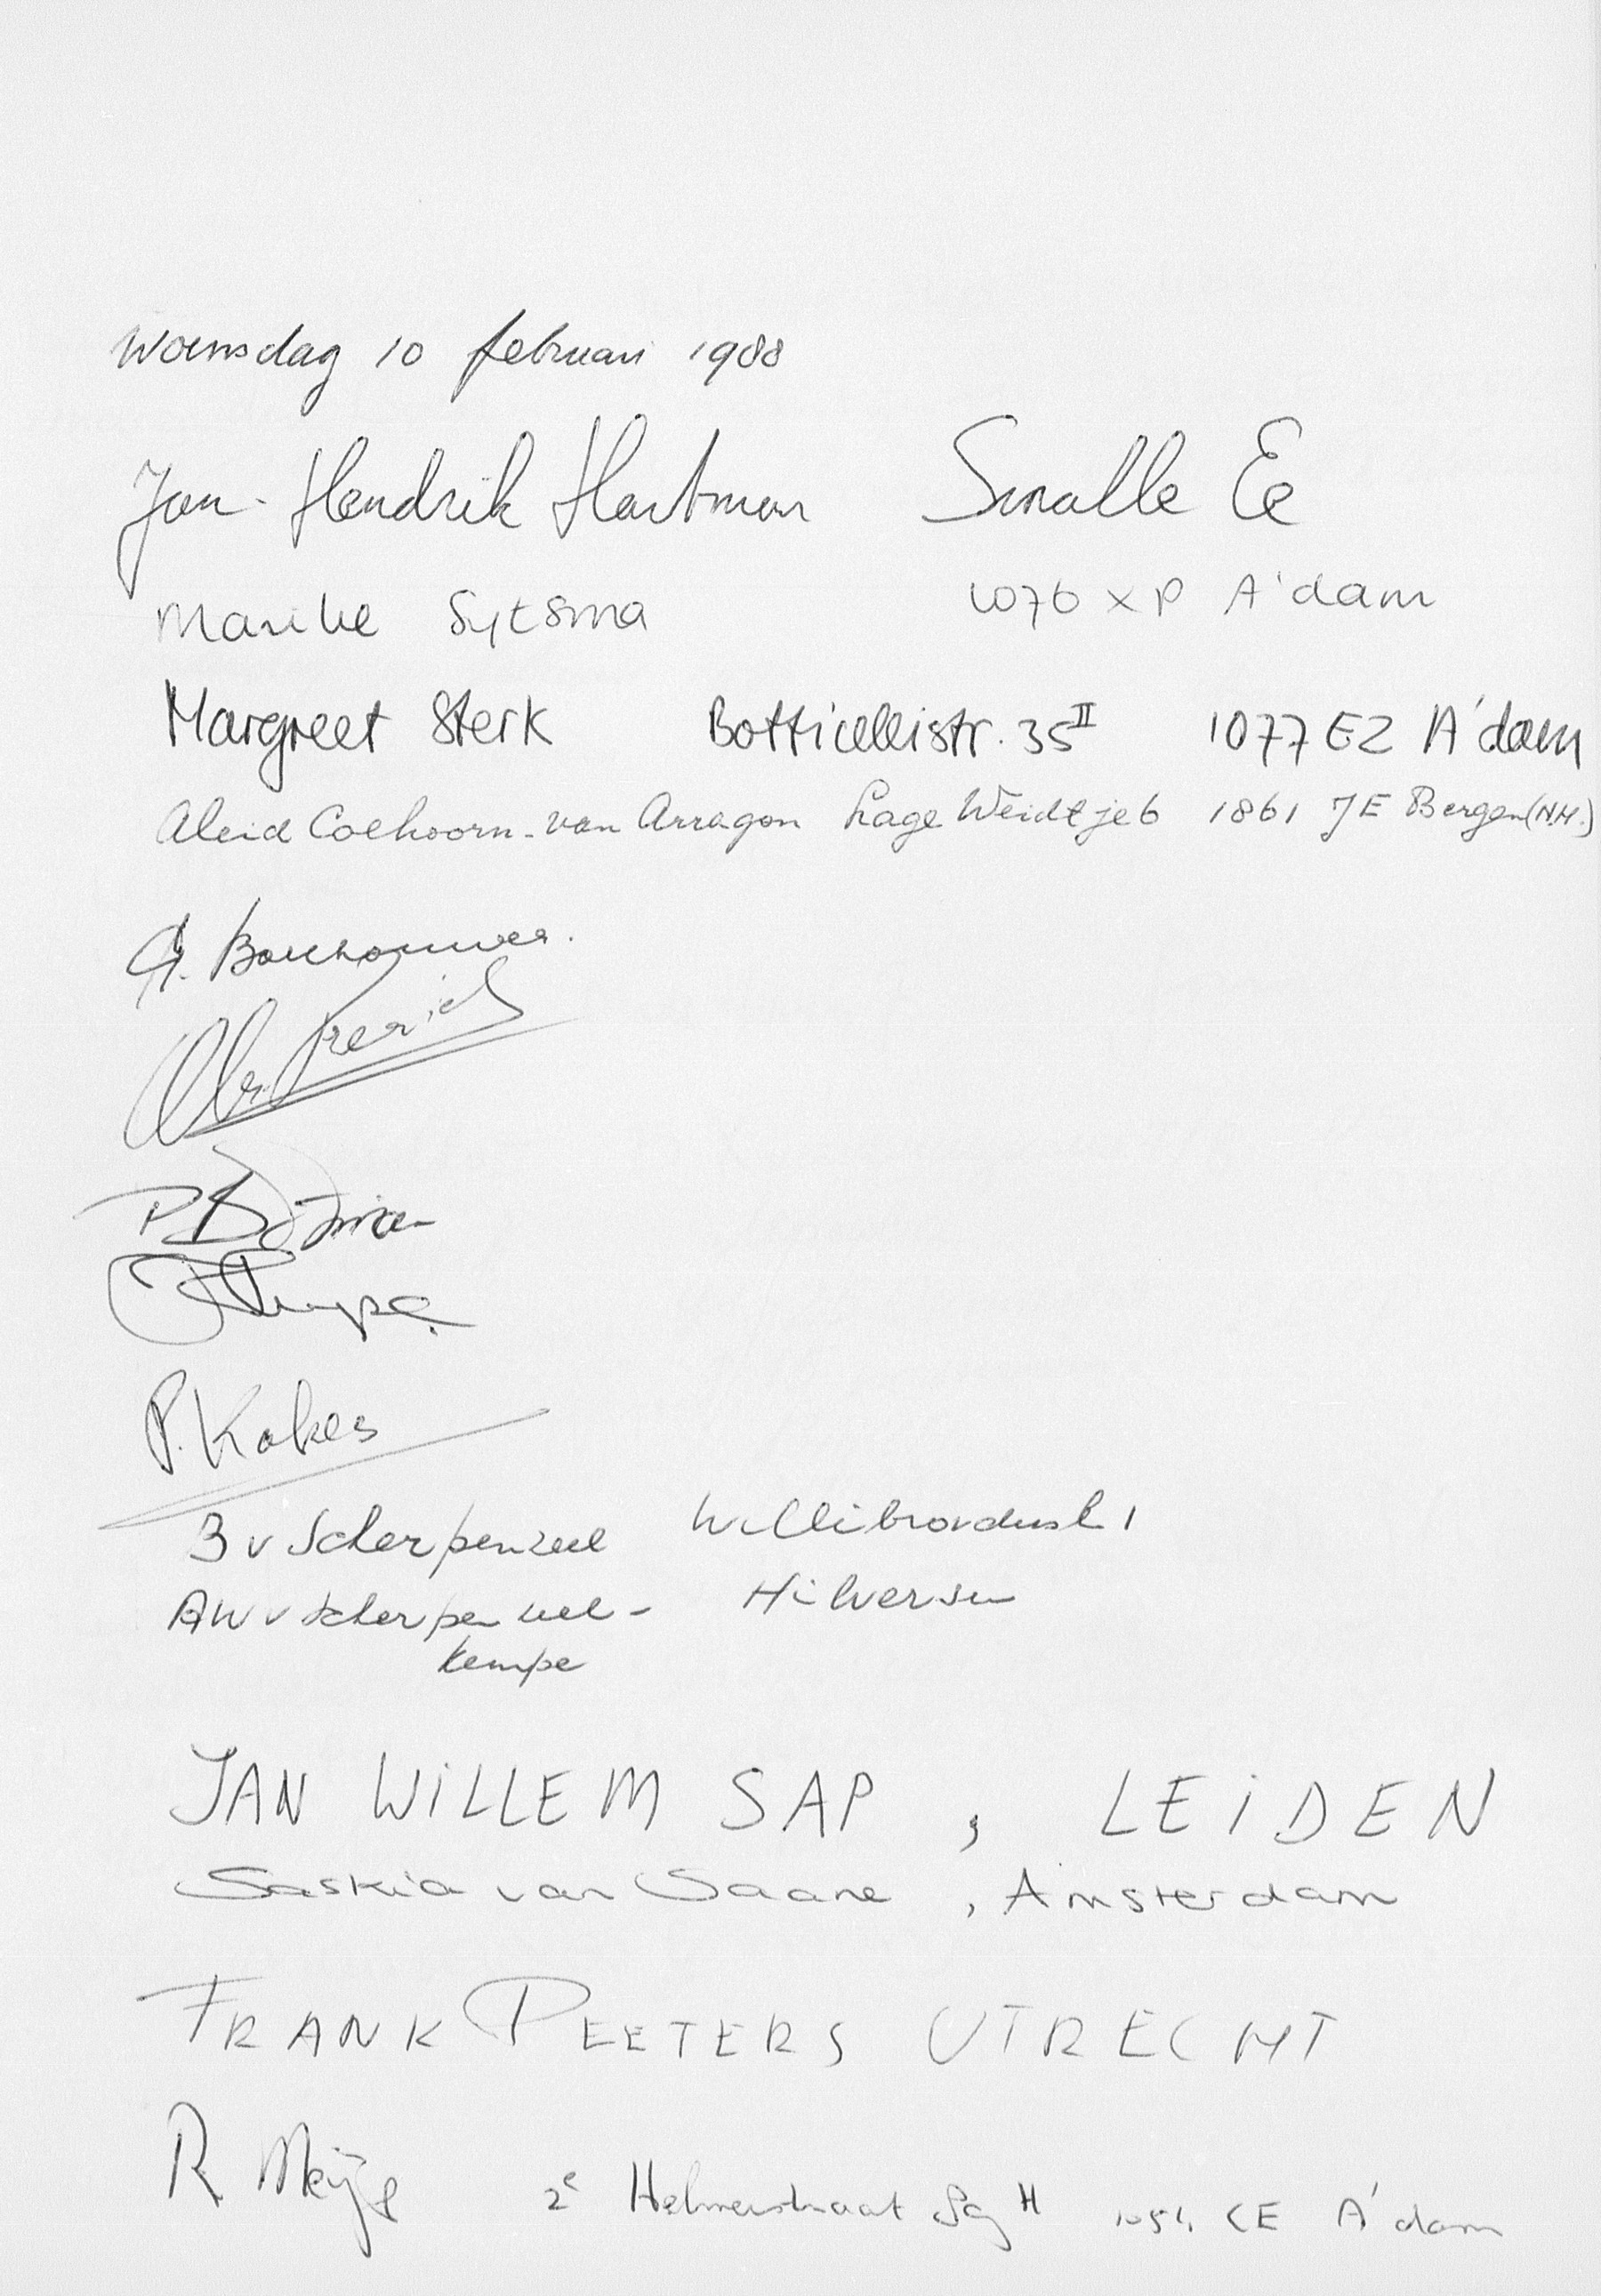 Woensdag 10 februari 1988
Jan-Hendrik Hartman Smalle Ee
Marike Sytsma 1076 XP A'dam
Margreet Sterk Botticellistr. 35 II 1077 EZ A'dam
Aleid Coehoorn-van Arragon Lage Weidtje 6 1861 JE Bergen (N.H.)
P. Kokes
B v Scherpenzeel Willibrorduslaan 1
AW v Scherpenzeel - Hilversum
Kempe
JAN WiLLEM SAP , LEiDEN
Saskia van Saane , Amsterdam
FRANK PEETERS UTRECHT
R. 2e Helmersstraat H 1054 CE A'dam